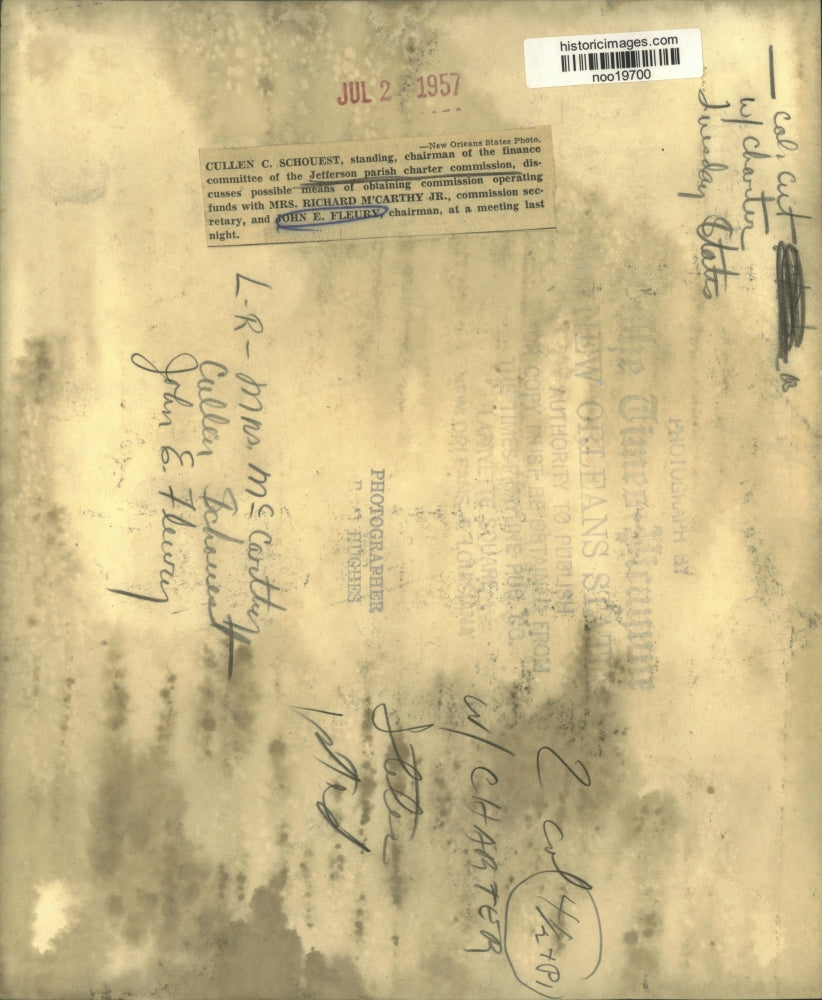 historicimages.com
noo19700
JUL 2 1957
—New Orleans States Photo.
CULLEN C. SCHOUEST, standing, chairman of the finance
committee of the Jefferson parish charter commission, dis-
cusses possible means of obtaining commission operating
funds with MRS. RICHARD M'CARTHY JR., commission sec-
retary, and JOHN E. FLEURY, chairman, at a meeting last
night.
— Col. cut
w/ charter
Tuesday States
L-R - Mrs. McCarthy
Cullen Schouest
John E Fleury
PHOTOGRAPH BY
The Times-Picayune
NEW ORLEANS STATES
AUTHORITY TO PUBLISH
COPY MUST BE OBTAINED FROM
THE TIMES-PICAYUNE PUB. CO.
LAFAYETTE SQUARE
NEW ORLEANS, LOUISIANA
PHOTOGRAPHER
HUGHES
2 col
4½
w/ CHARTER
States